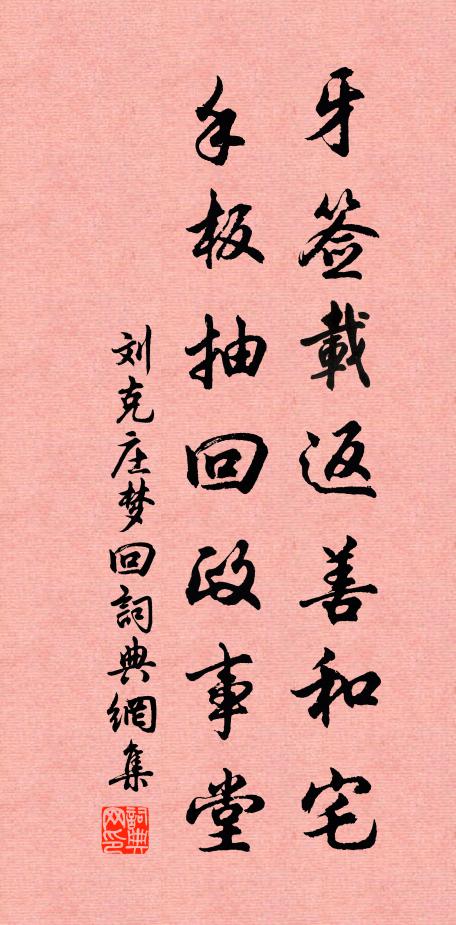 牙签載返善和宅
手板抽回政事堂
刘克庄梦回詞典網集
詞典网印